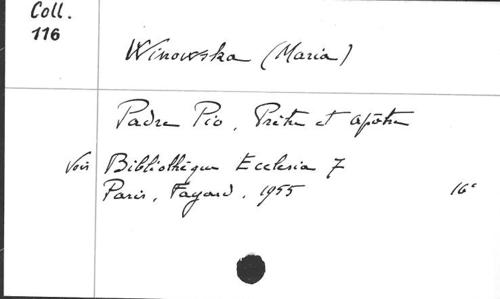 Coll.
116
Winowska (Maria)
Padre Pio, Prêtre et apôtre
Voir Bibliothèque Ecclesia 7
Paris, Fayard, 1955 16°